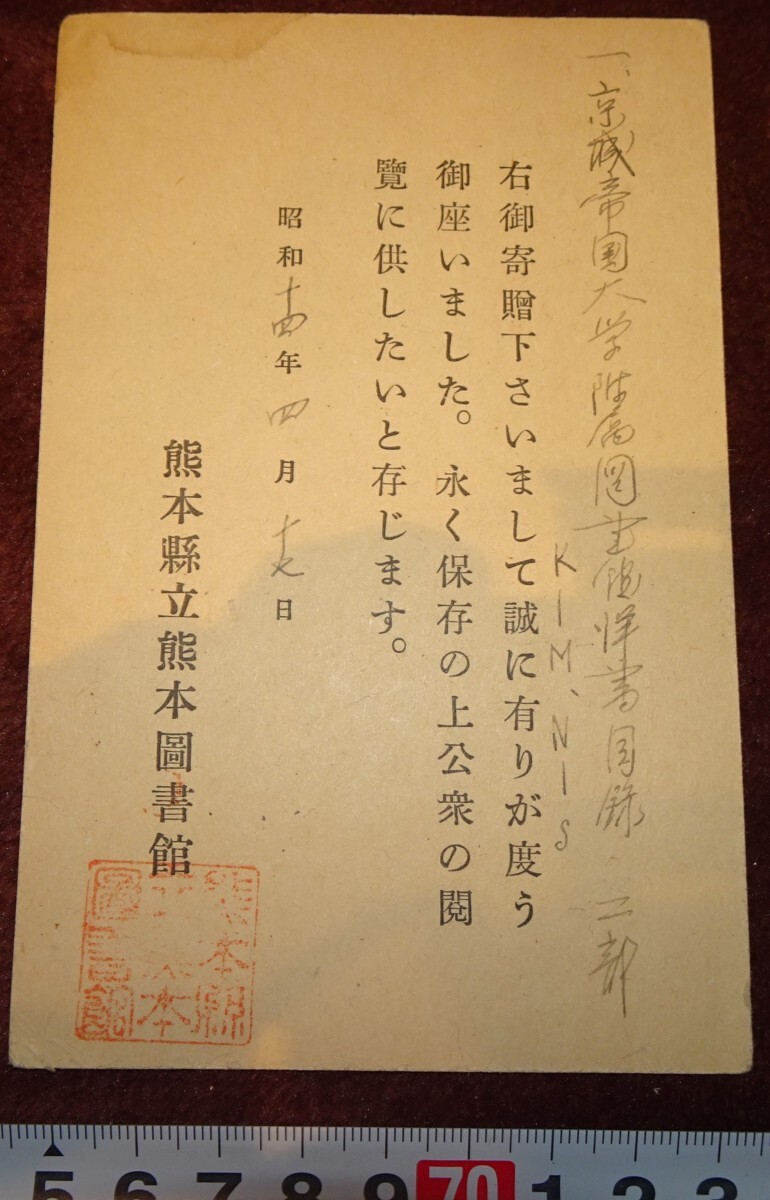 一、京城帝国大学附属図書館洋書目録 二部
KIM、NIS
右御寄贈下さいまして誠に有りが度う
御座いました。永く保存の上公衆の閲
覽に供したいと存じます。
昭和十四年四月十七日
熊本縣立熊本圖書館
熊本縣
立熊本
圖書館
5 6 7 8 9 70 1 2 3